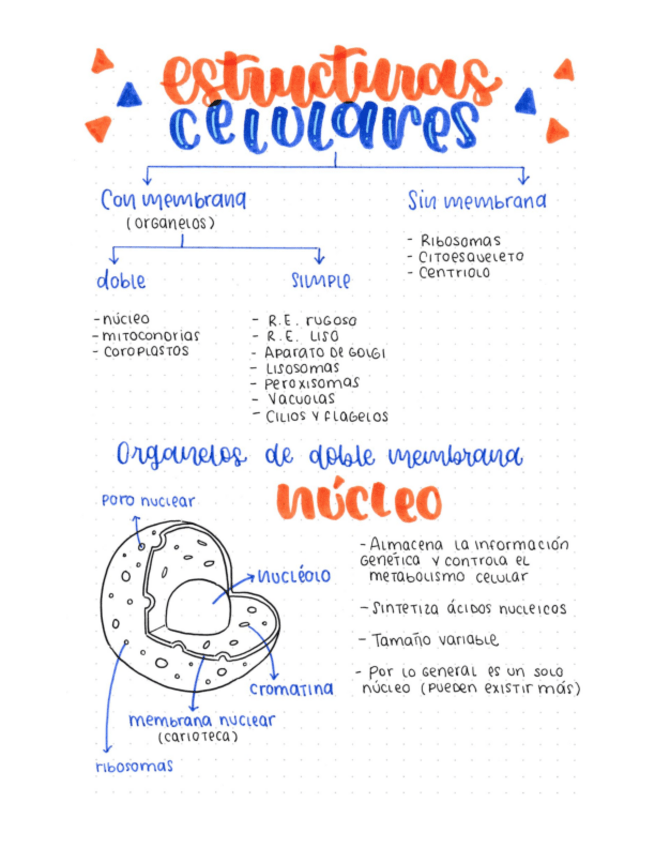 estructuras
celulares
Con membrana
(organelos)
Sin membrana
- Ribosomas
- Citoesqueleto
- Centriolo
doble
simple
- núcleo
- mitocondrias
- coroplastos
- R.E. rugoso
- R.E. liso
- Aparato de Golgi
- Lisosomas
- Peroxisomas
- Vacuolas
- Cilios y flagelos
Organelos de doble membrana
núcleo
poro nuclear
nucléolo
cromatina
membrana nuclear
(carioteca)
ribosomas
- Almacena la información
genética y controla el
metabolismo celular
- Sintetiza ácidos nucleicos
- Tamaño variable
- Por lo general es un solo
núcleo (pueden existir más)